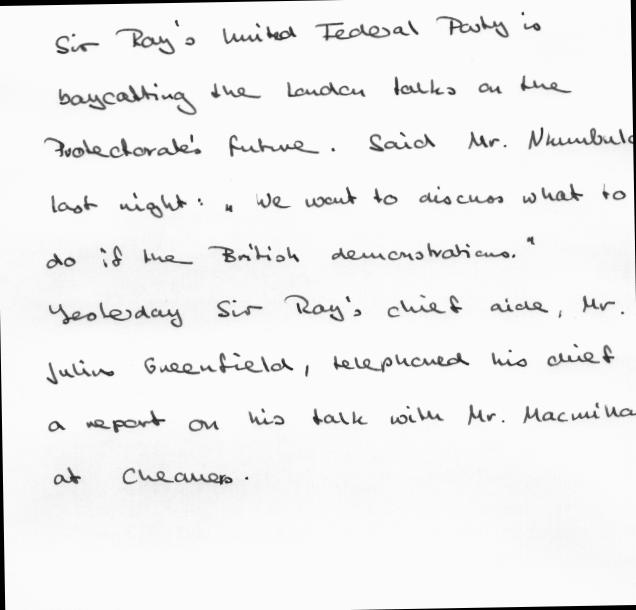 Sir Roy's United Federal Party is
boycotting the London talks on the
Protectorate's future. Said Mr. Nkumbula
last night: "We want to discuss what to
do if the British demonstrations."
Yesterday Sir Roy's chief aide, Mr.
Julius Greenfield, telephoned his chief
a report on his talk with Mr. Macmilla
at Chequers.